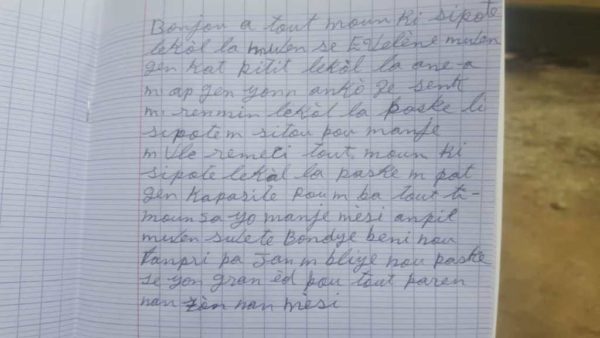 Bonjou a tout moun ki sipote
lekòl la mwen se EVelène mwen
gen kat pitit lekòl la ane-a
m ap gen yonn ankò ze senk
m renmin lekòl la paske li
sipote m sitou pou manje
m Vle remeti tout moun ki
sipote lekòl la paske m pat
gen kapasite pou m ba tout ti-
moun sa yo manje mèsi anpil
mwen swete Bondye beni nou
tanpri pa Jan m bliye nou paske
se yon gran èd pou tout paren
nan zòn nan mèsi